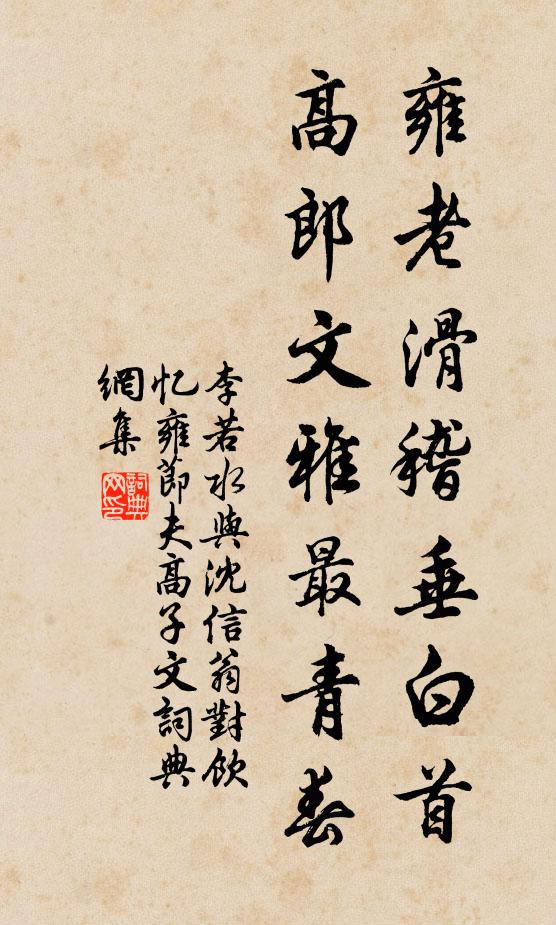 雍老滑稽垂白首
高郎文雅最青春
李若水與沈信翁對飲
忆雍節夫高子文詞典
網集
詞典
网印